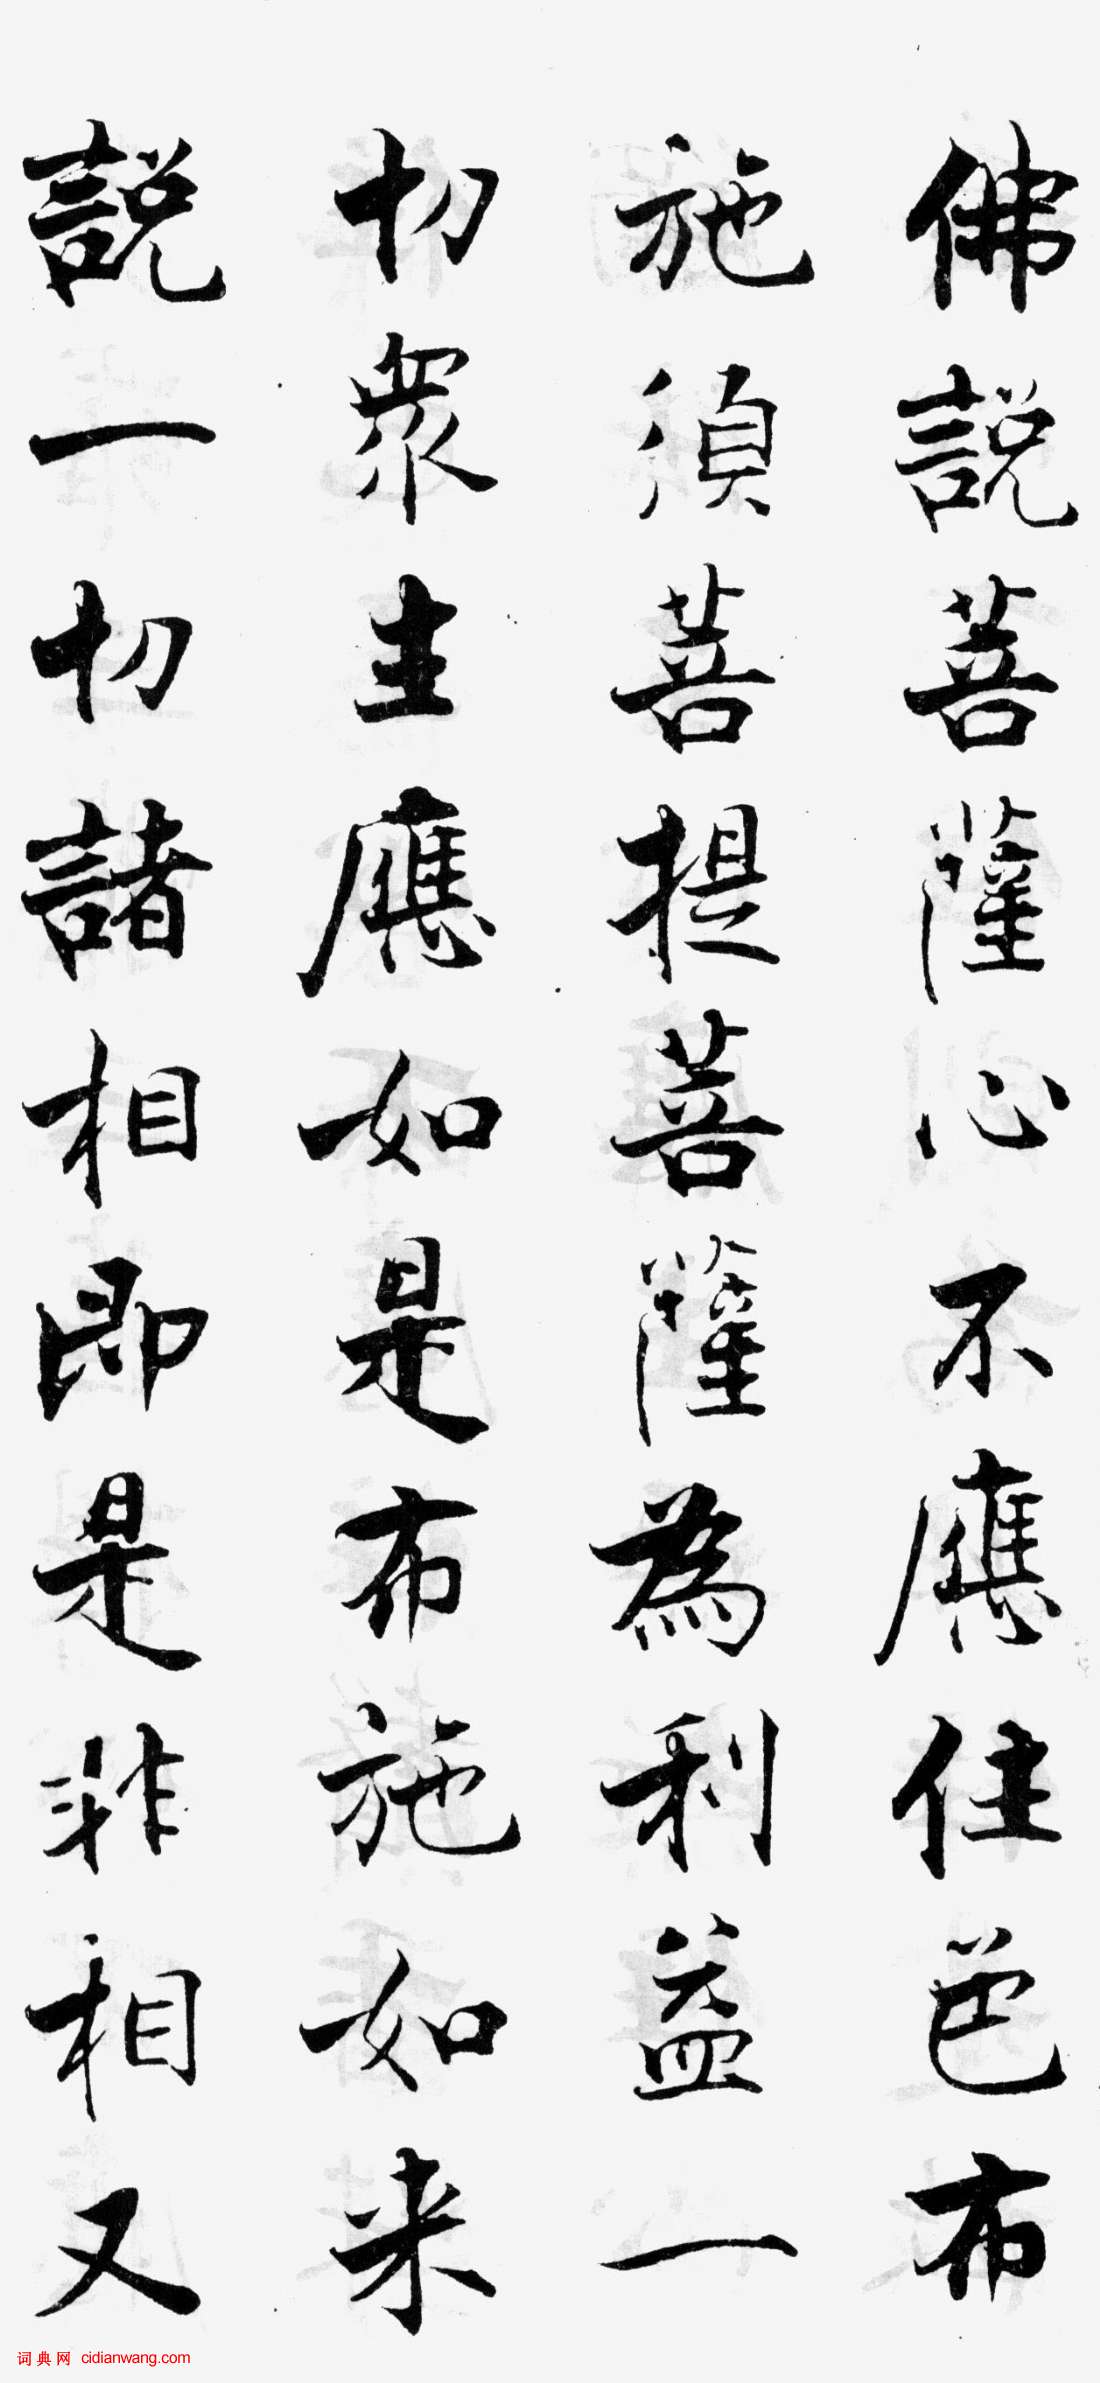 佛説菩薩心不應住色布
施須菩提菩薩為利益一
切衆生應如是布施如来
説一切諸相即是非相又
词典网 cidianwang.com